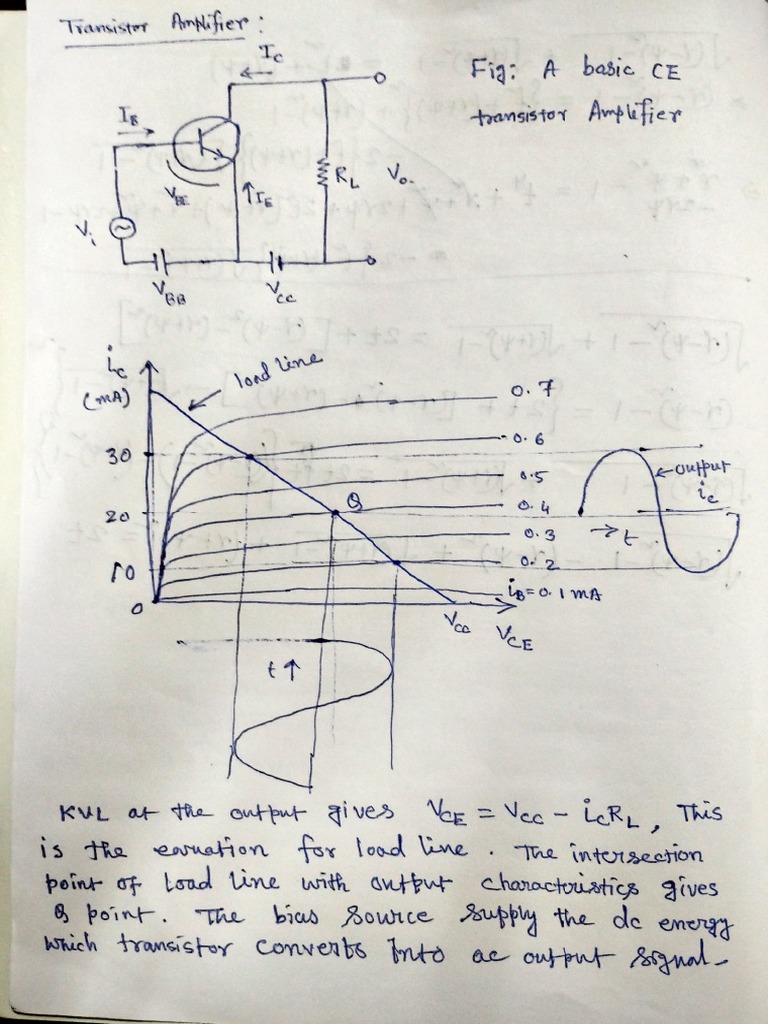 Transistor Amplifier :
Fig: A basic CE
transistor Amplifier
I_C
I_B
V_BE
↑I_E
R_L
V_o
V_i
V_BB
V_CC
i_c
(mA)
load line
0.7
0.6
30
0.5
output
i_c
Q
0.4
20
→ t
0.3
0.2
10
i_B=0.1 mA
0
V_CC
V_CE
t ↑
KVL at the output gives V_CE = V_CC - i_C R_L, This
is the equation for load line. The intersection
point of load line with output characteristics gives
Q point. The bias source supply the dc energy
which transistor converts into ac output signal-